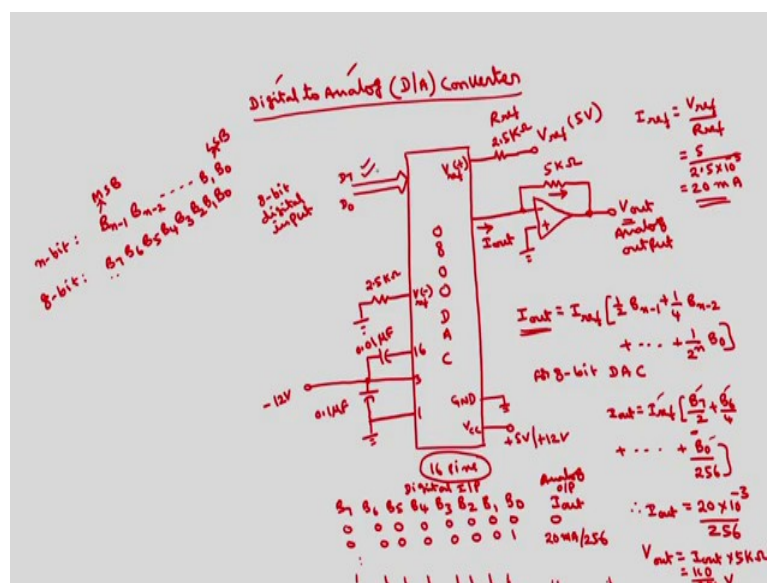 Digital to Analog (D/A) Converter
MSB
LSB
n-bit: Bn-1 Bn-2 ---- B1 B0
8-bit: B7 B6 B5 B4 B3 B2 B1 B0
8-bit digital input
D7
D0
0800 DAC
Vref(+)
Rref
2.5KΩ
Vref (5V)
5KΩ
Iout
Vout
Analog output
2.5KΩ
Vref(-)
0.01μF
16
-12V
3
0.1μF
1
GND
Vcc
+5V/+12V
16 pins
Iref = Vref/Rref
= 5/2.5x10^-3
= 20 mA
Iout = Iref [1/2 Bn-1 + 1/4 Bn-2
+ --- + 1/2^n B0]
8-bit DAC
Iout = Iref [B7/2 + B6/4
+ ---- + B0/256]
∴ Iout = 20x10^-3/256
Vout = Iout x 5KΩ
Digital I/P
Analog O/P
B7 B6 B5 B4 B3 B2 B1 B0 Iout
0 0 0 0 0 0 0 0 0
0 0 0 0 0 0 0 1 20mA/256